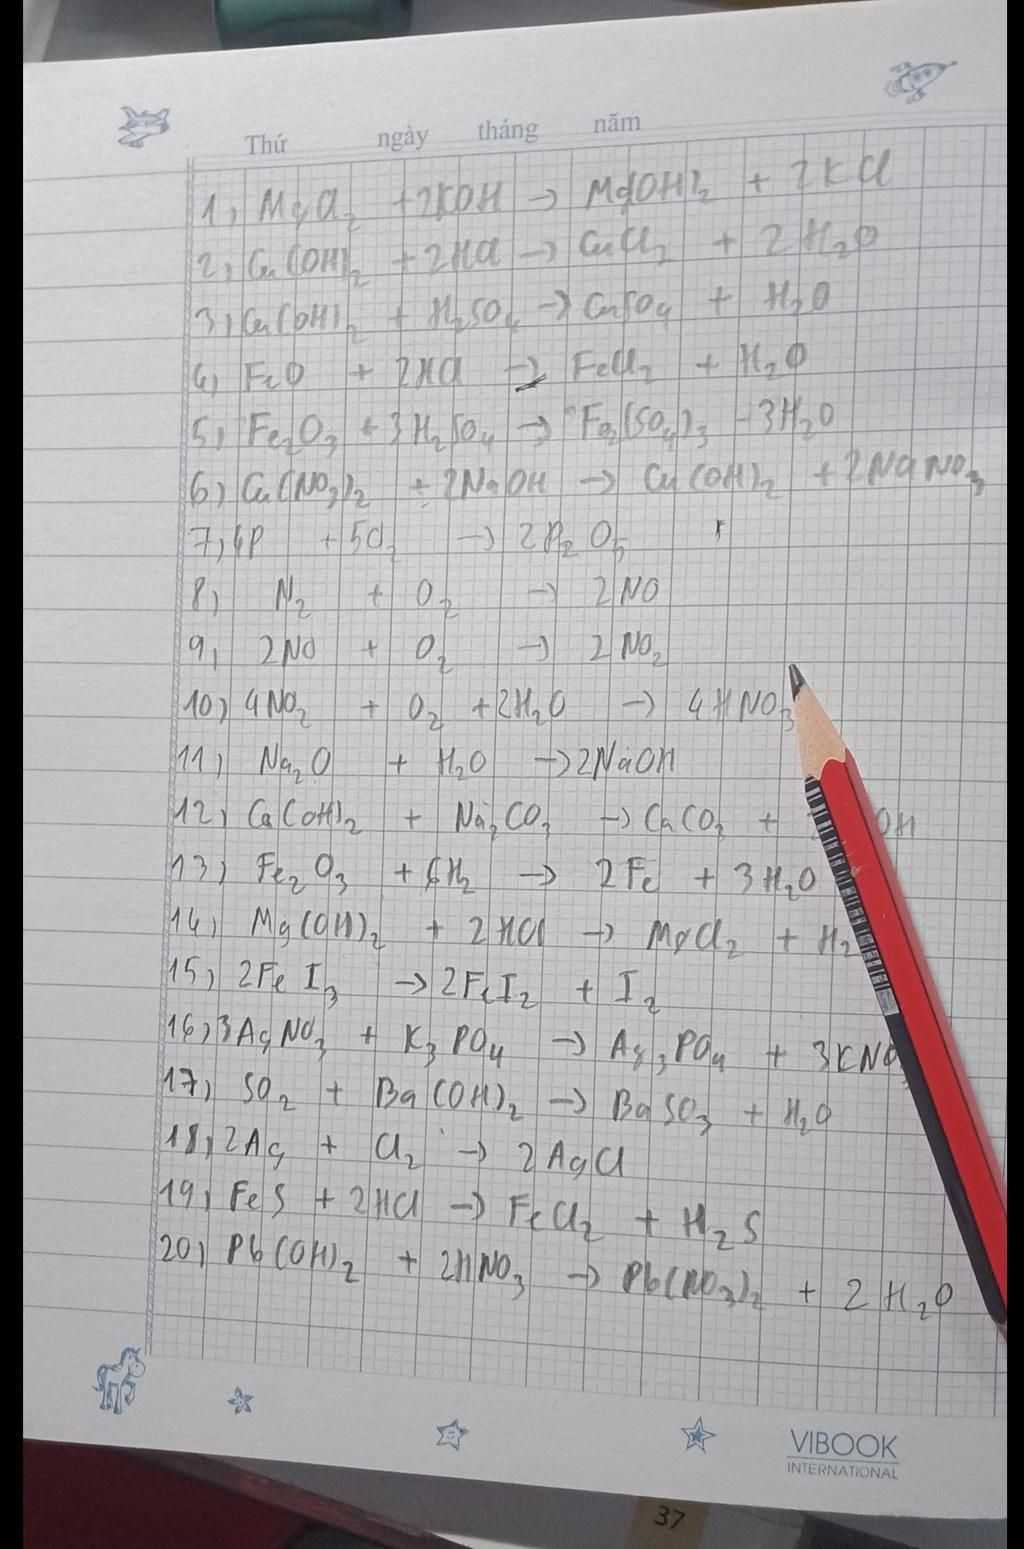 Thứ ngày tháng năm
1, MgCl2 + 2KOH → Mg(OH)2 + 2KCl
2, Cu(OH)2 + 2HCl → CuCl2 + 2H2O
3, Ca(OH)2 + H2SO4 → CaSO4 + H2O
4, FeO + 2HCl → FeCl2 + H2O
5, Fe2O3 + 3H2SO4 → Fe2(SO4)3 - 3H2O
6, Cu(NO3)2 + 2NaOH → Cu(OH)2 + 2NaNO3
7, 4P + 5O2 → 2P2O5
8, N2 + O2 → 2NO
9, 2NO + O2 → 2NO2
10, 4NO2 + O2 + 2H2O → 4HNO3
11, Na2O + H2O → 2NaOH
12, Ca(OH)2 + Na2CO3 → CaCO3 + OH
13, Fe2O3 + 6H2 → 2Fe + 3H2O
14, Mg(OH)2 + 2HCl → MgCl2 + H2
15, 2FeI3 → 2FeI2 + I2
16, 3AgNO3 + K3PO4 → Ag3PO4 + 3KNO
17, SO2 + Ba(OH)2 → BaSO3 + H2O
18, 2Ag + Cl2 → 2AgCl
19, FeS + 2HCl → FeCl2 + H2S
20, Pb(OH)2 + 2HNO3 → Pb(NO3)2 + 2H2O
VIBOOK
INTERNATIONAL
37